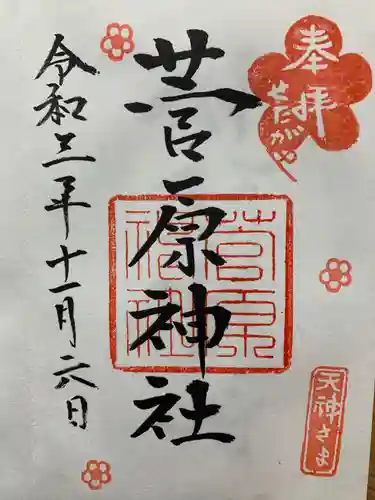 奉拝
せたがや
菅原神社
菅原神社
令和三年十一月六日
天神さま